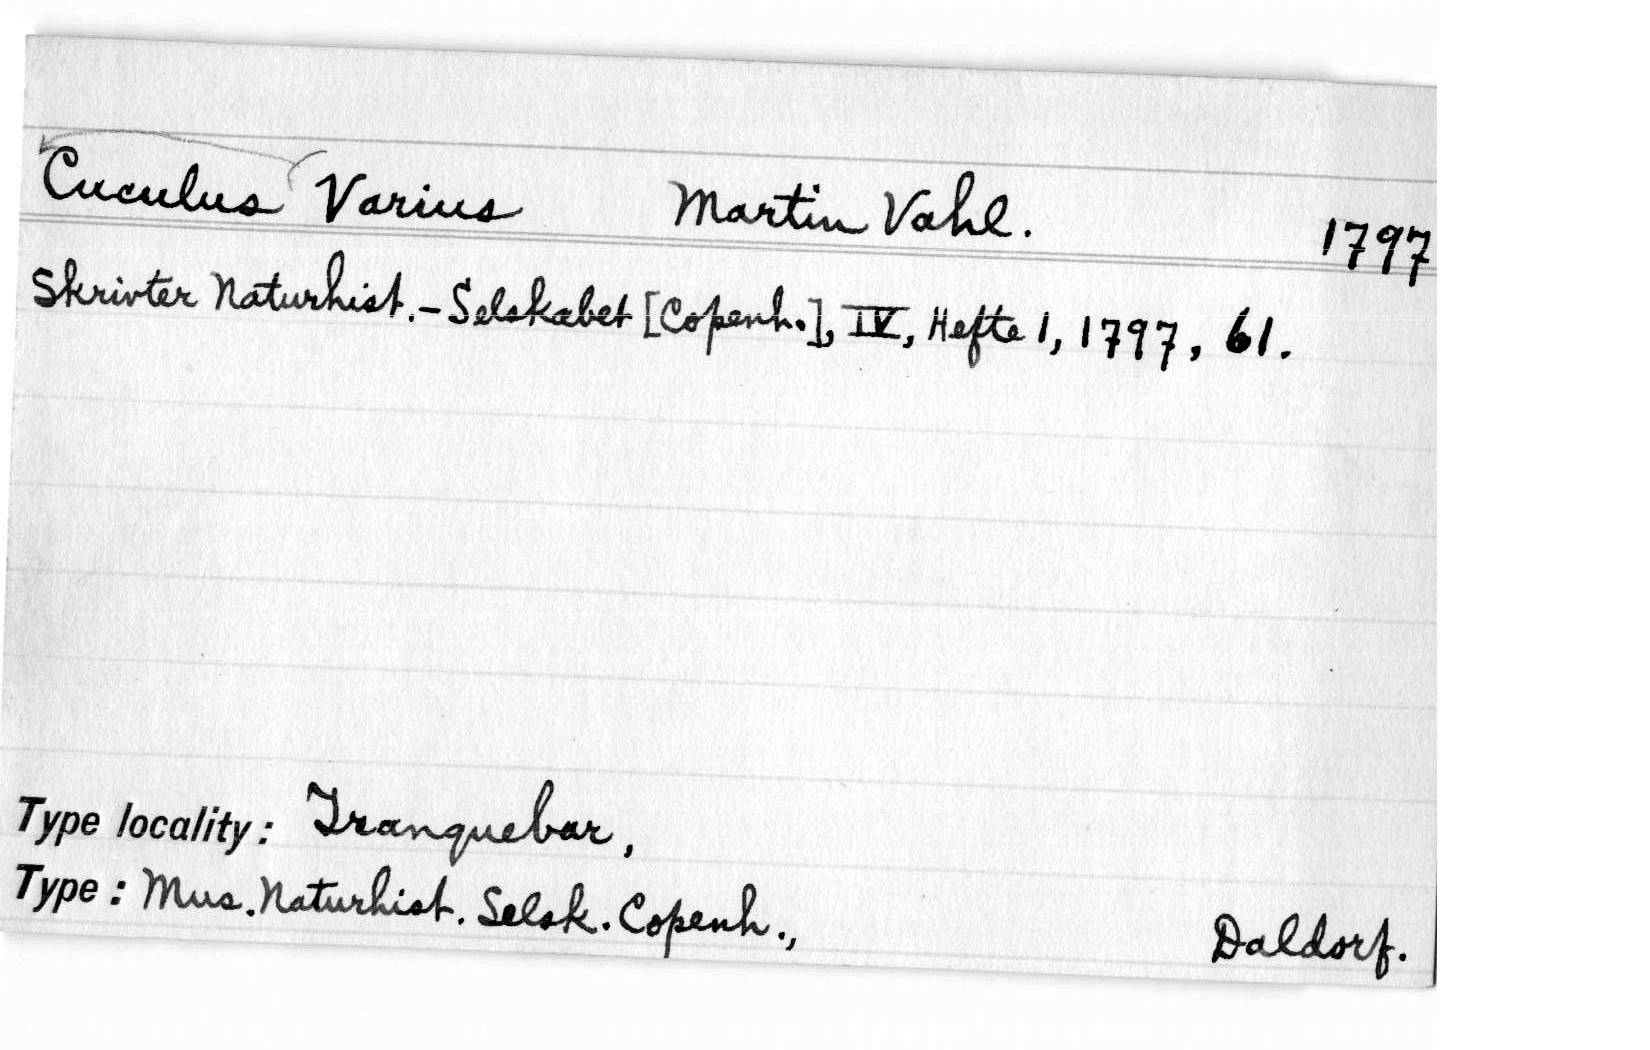 Cuculus Varius Martin Vahl. 1797
Skrivter Naturhist.-Selskabet [Copenh.], IV, Hefte 1, 1797, 61.
Type locality: Tranquebar,
Type: Mus. Naturhist. Selsk. Copenh., Daldorf.